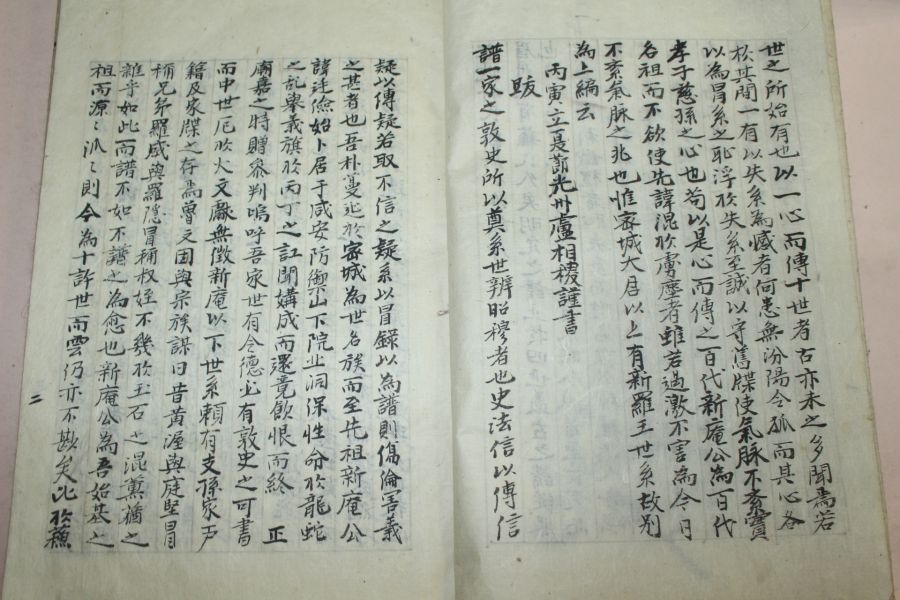 世之所始有也以一心而傳十世者古亦未之多聞焉若
於其間一有以失系為慽者何患無汾陽令狐而其心各
以為冒系之恥浮於失系至誠以守舊牒使氣脉不紊實
孝子慈孫之心也苟以是心而傳之百代新庵公為百代
名祖而不欲使先諱混於膺壓者雖若過激不害為今日
不紊氣脉之兆也惟密城大君以上有新羅王世系故別
為上編云
丙寅立夏節光州盧相稷謹書
跋
譜一家之敦史所以奠系世辨昭穆者也史法信以傳信
疑以傳疑若取不信之疑系以冒錄以為譜則傷倫害義
之甚者也吾朴蔓延於密城為世名族而至先祖新庵公
諱廷儉始卜居于咸安防禦山下院北洞保性命於龍蛇
之乱舉義旗於丙丁之訌聞媾成而還竟飮恨而終 正
廟嘉之特贈參判嗚呼吾家世有令德必有敦史之可書
而中世厄於火文獻無徵新庵以下世系賴有支孫家戶
籍及家牒之存焉曾又因與宗族謀曰昔黃渥與庭堅冒
稱兄弟羅威與羅隱冒稱叔姪不幾於玉石之混薰蕕之
雜乎如此而譜不如不譜之為愈也新庵公為吾始基之
祖而源之派之則今為十許世而雲仍亦不尠矣比於蘓
二